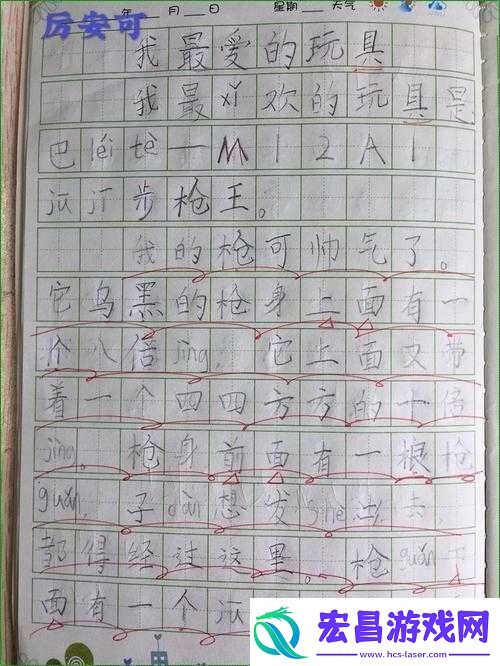 年__月__日 星期__天气
厉安可
我最爱的玩具
我最xǐ欢的玩具是
巴léi tè一M12A1
jū jī步枪王。
我的枪可帅气了。
它乌黑的枪身上面有一
个八倍jìng,它上面又带
着一个四四方方的十倍
jìng。枪身前面有一根枪
guǎn,子dàn想发shè出去,
都得经过这里。枪guǎn下
面有一个
宏昌游戏网
www.hcs-laser.com